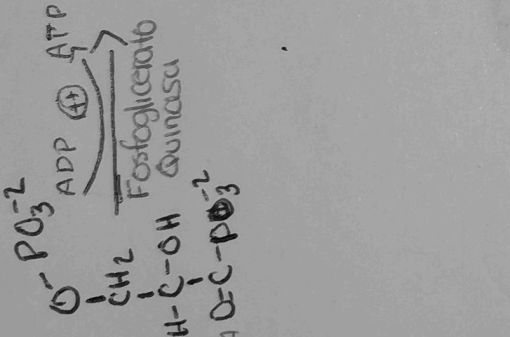 O-PO3-2
CH2
H-C-OH
O=C-PO3-2
ADP ++ ATP
Fosfoglicerato
Quinasa